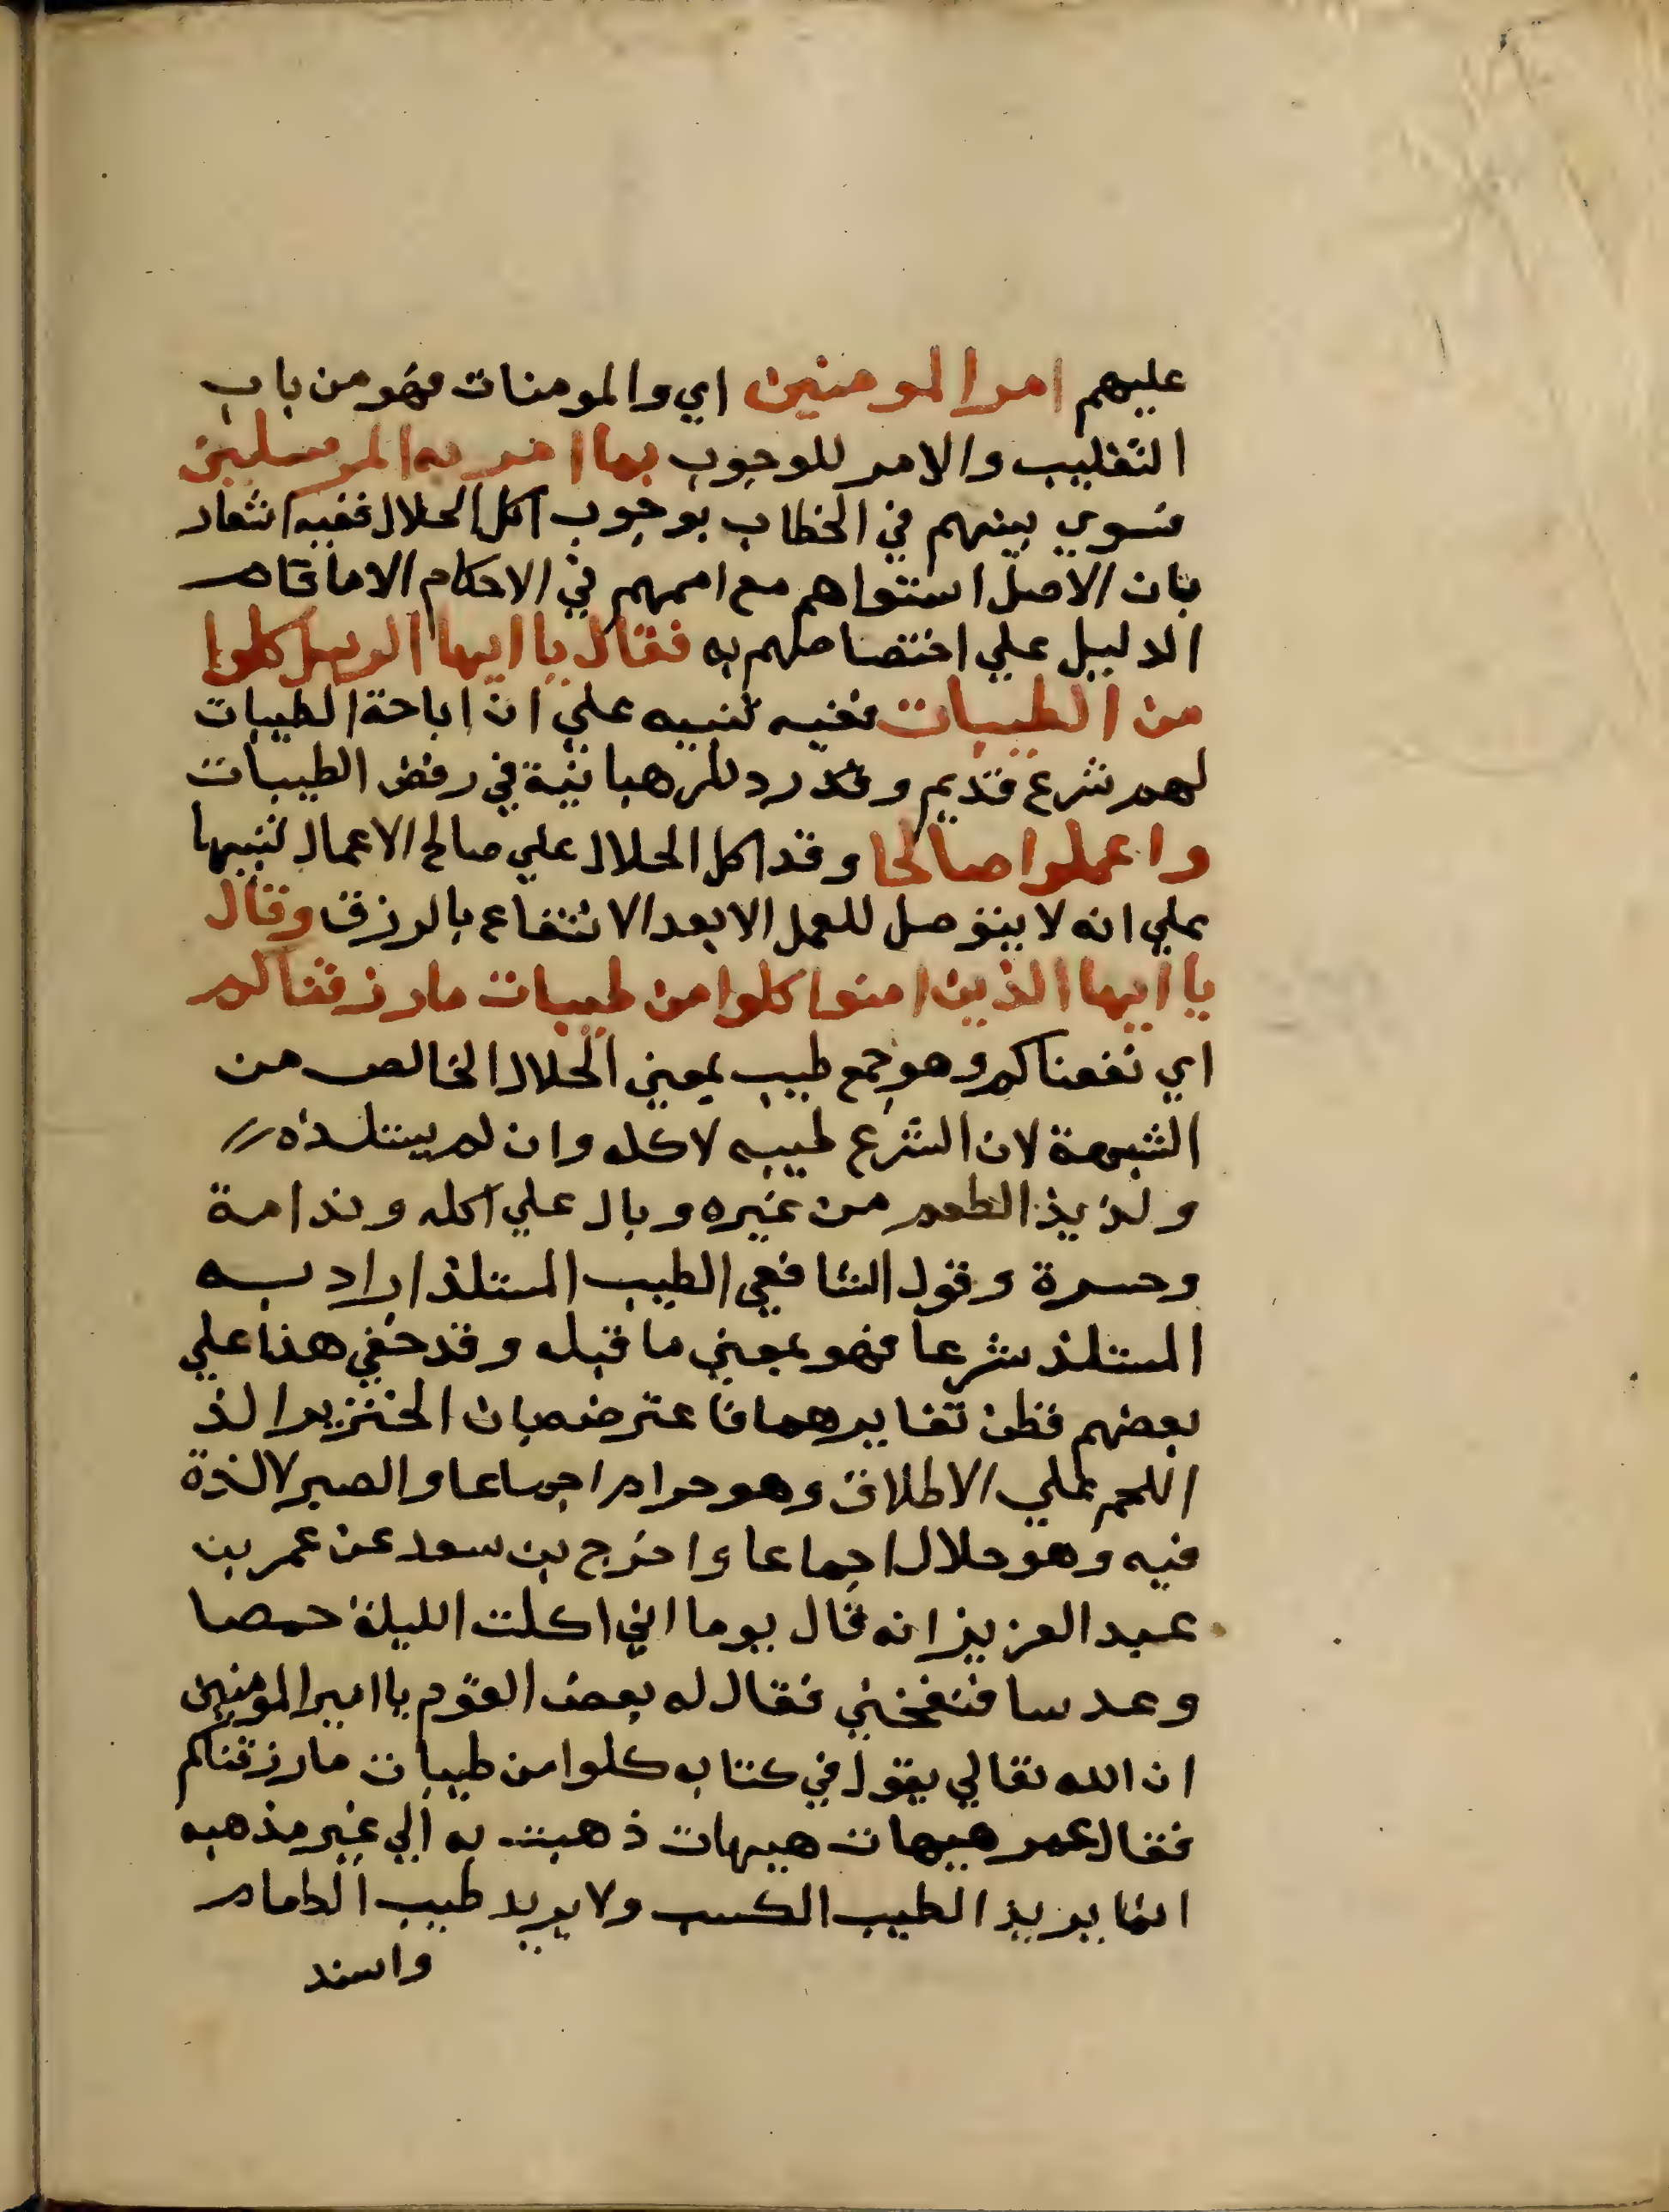 عليهم امر المومنين اي والمومنات فهو من باب
التغليب والامر للوجوب بما امر به المرسلين
فسوي بينهم في الخطاب بوجوب اكل الحلال ففيه اشعار
بان الاصل استواهم مع اممهم في الاحكام الا ما قام
الدليل علي اختصاصهم به فقال يا ايها الرسل كلوا
من الطيبات ففيه تنبيه علي ان اباحة الطيبات
لهم شرع قديم ورد للرهبانية في رفض الطيبات
واعملوا صالحا وقد اكل الحلال علي صالح الاعمال تنبيها
علي انه لا يتوصل للعمل الا بعد الانتفاع بالرزق وقال
يا ايها الذين امنوا كلوا من طيبات ما رزقناكم
اي نفعناكم وهو جمع طيب بمعني الحلال الخالص من
الشبهة لان الشرع طيبه لاكله وان لم يستلذه
ولذيذ الطعم من غيره وبال علي اكله وندامة
وحسرة وقول الشافعي الطيب المستلذ اراد به
المستلذ شرعا فهو بمعني ما قبله وقد خفي هذا علي
بعضهم فظن تغايرهما فاعترض بان الخنزير الذ
اللحم علي الاطلاق وهو حرام اجماعا والصبر لا لذة
فيه وهو حلال اجماعا واخرج بن سعد عن عمر بن
عبد العزيز انه قال يوما اني اكلت الليلة حمصا
وعدسا فنفخني فقال له بعض القوم يا امير المومنين
ان الله تعالي يقول في كتابه كلوا من طيبات ما رزقناكم
فقال عمر هيهات هيهات ذهبت به الي غير مذهبه
انما يريد الطيب الكسب ولا يريد طيب الطعام
واسند